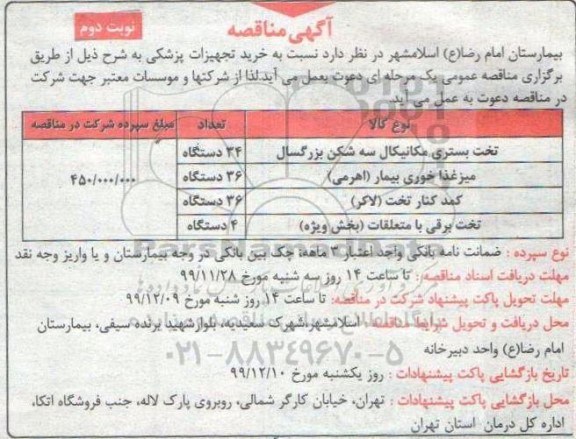 آگهی مناقصه
نوبت دوم
بیمارستان امام رضا(ع) اسلامشهر در نظر دارد نسبت به خرید تجهیزات پزشکی به شرح ذیل از طریق
برگزاری مناقصه عمومی یک مرحله ای دعوت بعمل می آید.لذا از شرکتها و موسسات معتبر جهت شرکت
در مناقصه دعوت به عمل می آید.
نوع کالا تعداد مبلغ سپرده شرکت در مناقصه
تخت بستری مکانیکال سه شکن بزرگسال ۳۴ دستگاه
میزغذا خوری بیمار (اهرمی) ۳۶ دستگاه ۴۵۰/۰۰۰/۰۰۰
کمد کنار تخت (لاکر) ۳۶ دستگاه
تخت برقی با متعلقات (بخش ویژه) ۴ دستگاه
نوع سپرده : ضمانت نامه بانکی واجد اعتبار ۳ ماهه، چک بین بانکی در وجه بیمارستان و یا واریز وجه نقد
مهلت دریافت اسناد مناقصه: تا ساعت ۱۴ روز سه شنبه مورخ ۹۹/۱۱/۲۸
مهلت تحویل پاکت پیشنهاد شرکت در مناقصه: تا ساعت ۱۴ روز شنبه مورخ ۹۹/۱۲/۰۹
محل دریافت و تحویل شرایط مناقصه: اسلامشهر،شهرک سعیدیه، بلوارشهید پرنده سیفی، بیمارستان
امام رضا(ع) واحد دبیرخانه
۰۲۱-۸۸۳۴۹۶۷۰-۵
تاریخ بازگشایی پاکت پیشنهادات : روز یکشنبه مورخ ۹۹/۱۲/۱۰
محل بازگشایی پاکت پیشنهادات : تهران، خیابان کارگر شمالی، روبروی پارک لاله، جنب فروشگاه اتکا،
اداره کل درمان استان تهران